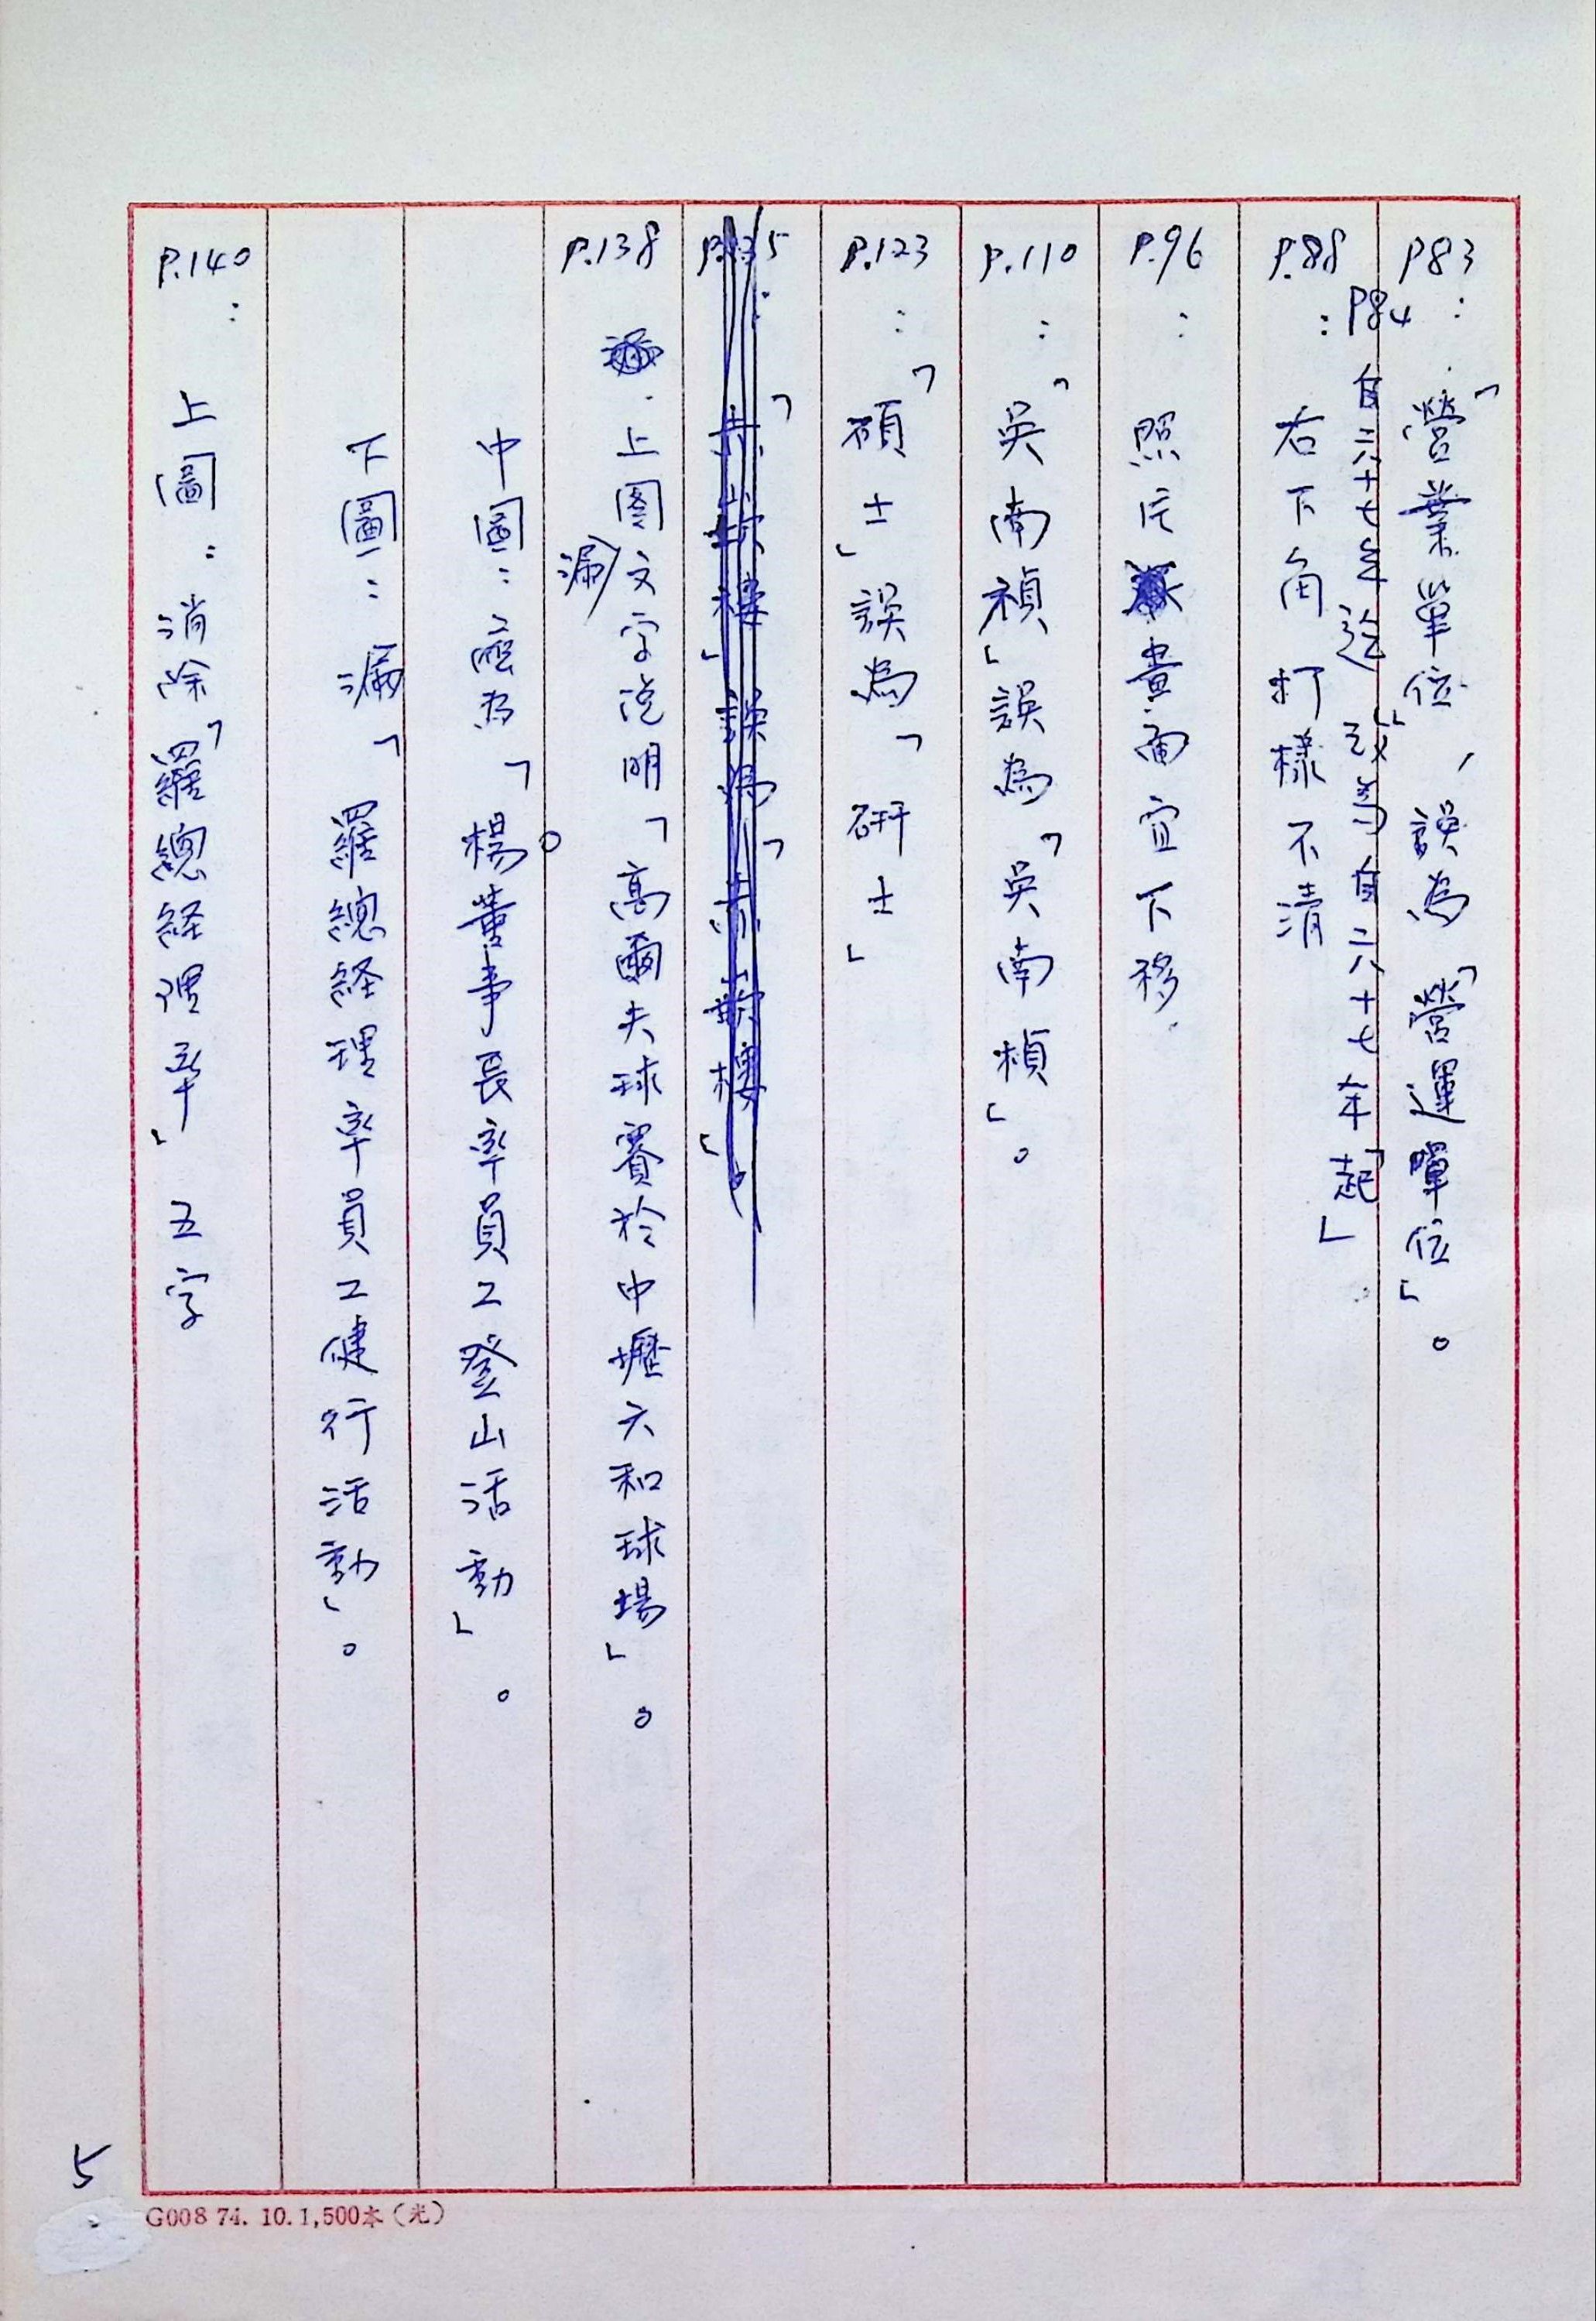 P83：「營業單位」，誤為「營運單位」。
P84 自六十七年迄 改為自六十七年起」
P.88：右下角打樣不清
P.96：照片畫面宜下移.
P.110：「吳南禎」誤為「吳南楨」。
P.123：「碩士」誤為「研士」
「」誤為「樓」
P.138 上圖文字說明漏「高爾夫球賽於中壢六和球場」。
中圖：應為「楊董事長率員工登山活動」。
下圖：漏「羅總経理率員工健行活動」。
P.140：上圖：消除「羅總経理率」五字
5
G008 74. 10. 1,500本（光）